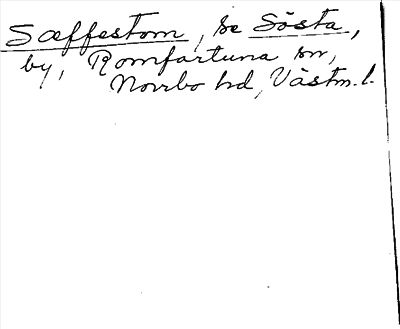 Sæffestom, se Sösta,
by, Romfartuna sn,
Norrbo hd, Västm. l.